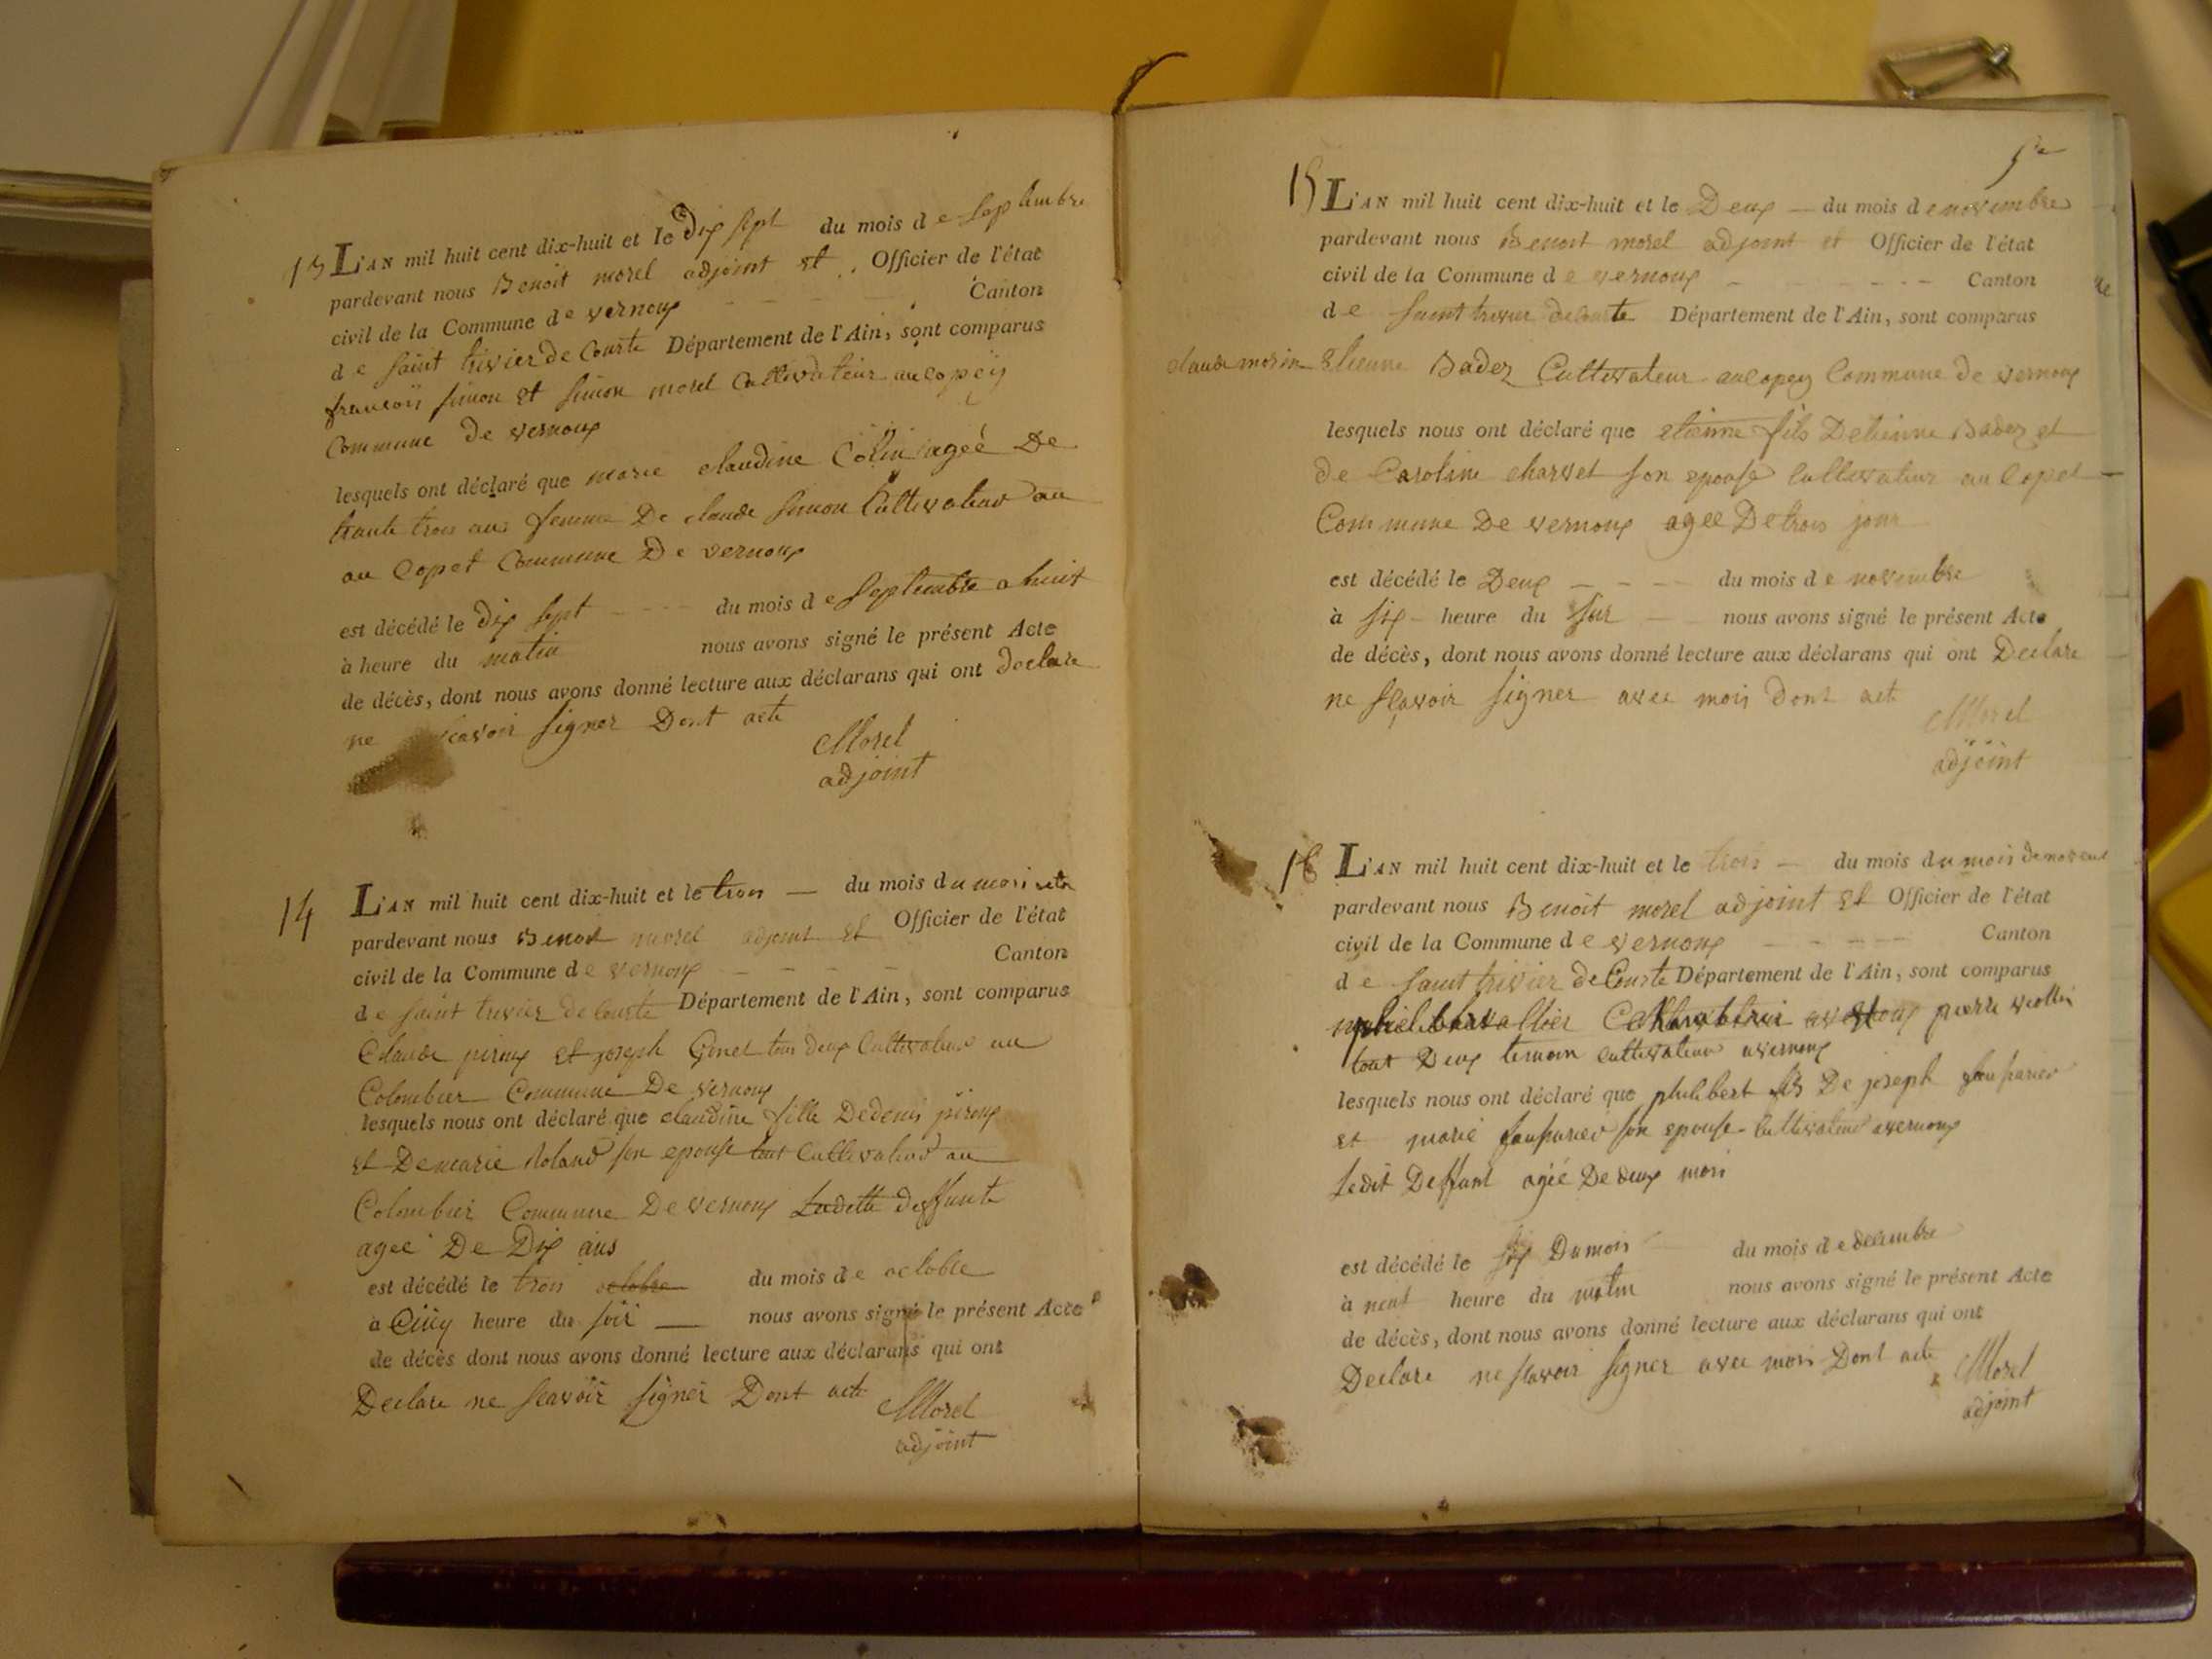 13 L'AN mil huit cent dix-huit et le dix sept du mois de septembre
pardevant nous Benoit morel adjoint et Officier de l'état
civil de la Commune de vernoux Canton
de saint trivier de Courte Département de l'Ain, sont comparus
francois simon et simon morel Cultivateur au copey
Commune de vernoux
lesquels ont déclaré que marie claudine Colin agée De
trante trois ans femme De claude simon Cultivateur au
au Copet Commune De vernoux
est décédé le dix sept du mois de septembre a huit
à heure du matin nous avons signé le présent Acte
de décès, dont nous avons donné lecture aux déclarans qui ont declare
ne scavoir signer Dont acte
Morel
adjoint
14 L'AN mil huit cent dix-huit et le trois du mois du mois
pardevant nous Benoit morel adjoint et Officier de l'état
civil de la Commune de vernoux Canton
de saint trivier de Courte Département de l'Ain, sont comparus
Claude piroux et joseph Gonet tous deux Cultivateur au
Colombier Commune De vernoux
lesquels nous ont déclaré que claudine fille Dedenis piroux
et Demarie Roland son epouse tout Cultivateur au
Colombier Commune De vernoux Ladette deffunte
agee De Dix ans
est décédé le trois octobre du mois de octobre
à Cinq heure du soir nous avons signé le présent Acte
de décès dont nous avons donné lecture aux déclarans qui ont
Declare ne scavoir signer Dont acte Morel
adjoint
15 L'AN mil huit cent dix-huit et le Deux du mois de novembre
pardevant nous Benoit morel adjoint et Officier de l'état
civil de la Commune de vernoux Canton
de saint trivier decourte Département de l'Ain, sont comparus
claude morin Etienne Badez Cultivateur au copey Commune de vernoux
lesquels nous ont déclaré que etienne fils Detienne Badez et
de Caroline charvet son epouse Cultivateur au Copet
Commune De vernoux agee De trois jour
est décédé le Deux du mois de novembre
à six heure du soir nous avons signé le présent Acte
de décès, dont nous avons donné lecture aux déclarans qui ont Declare
ne sçavoir signer avec mois Dont act
Morel
adjoint
16 L'AN mil huit cent dix-huit et le trois du mois du mois
pardevant nous Benoit morel adjoint et Officier de l'état
civil de la Commune de vernoux Canton
de saint trivier de Courte Département de l'Ain, sont comparus
pierre
tout Deux temoin cultivateur avernoux
lesquels nous ont déclaré que philibert fils De joseph
et marie son epouse Cultivateur avernoux
Ledit Deffunt agée De deux mois
est décédé le six Dumois du mois de decembre
à neuf heure du matin nous avons signé le présent Acte
de décès, dont nous avons donné lecture aux déclarans qui ont
Declare ne scavoir signer avec mois Dont acte Morel
adjoint